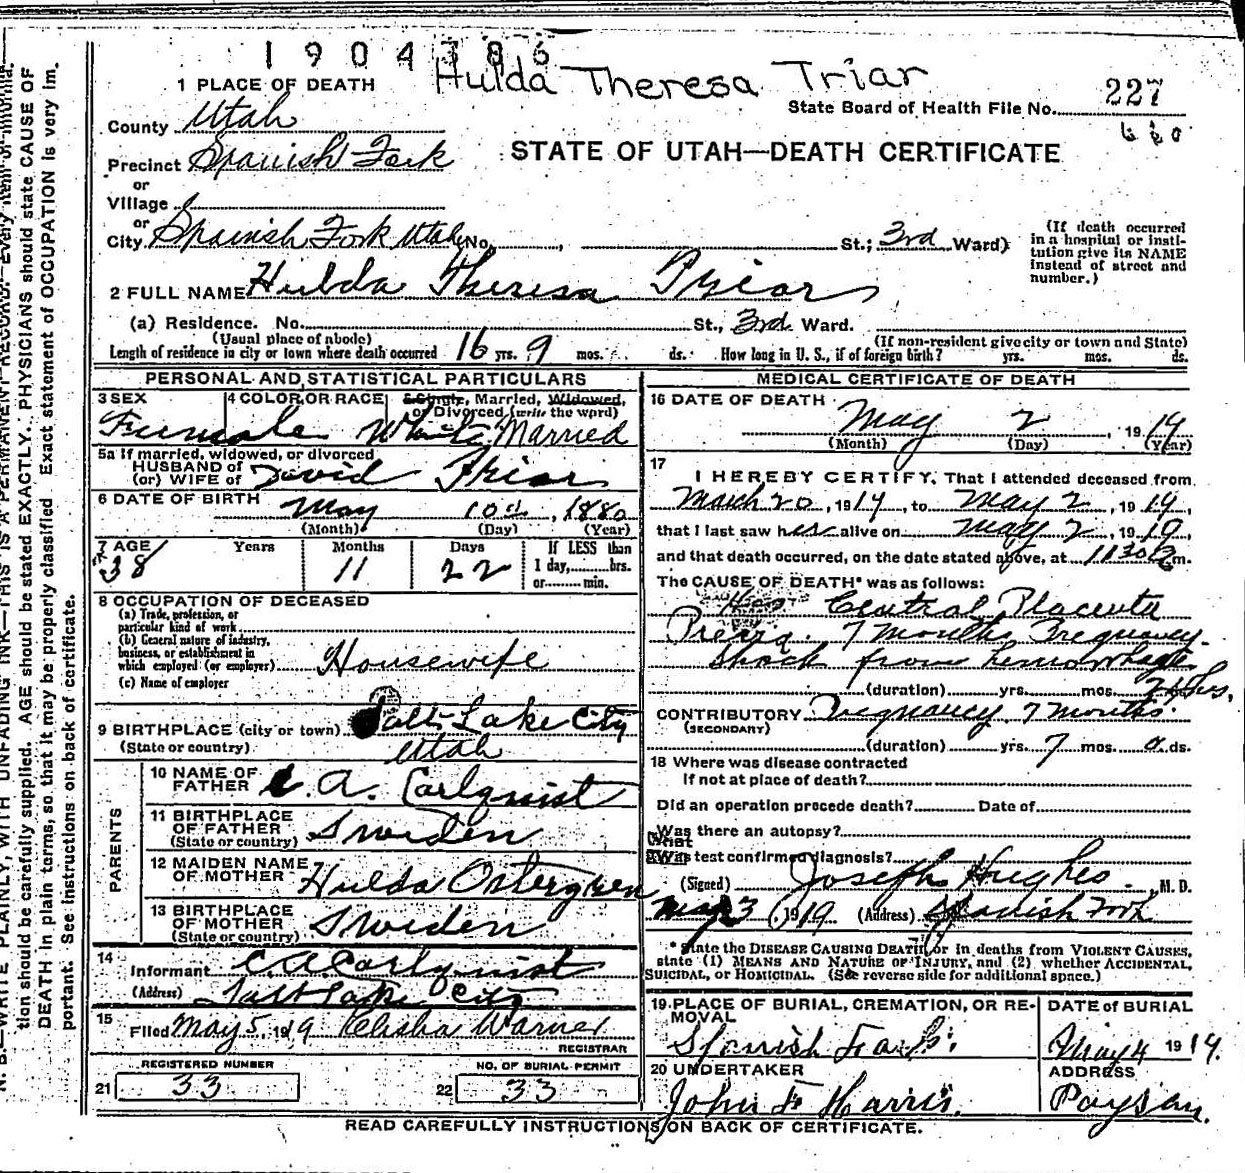 1904786
Hulda Theresa Triar
1 PLACE OF DEATH
State Board of Health File No. 227
County Utah
Precinct Spanish Fork
STATE OF UTAH—DEATH CERTIFICATE
or
Village
or
City Spanish Fork Utah No. St.; 3rd Ward)
(If death occurred in a hospital or insti-
tution give its NAME
instead of street and
number.)
2 FULL NAME Hulda Theresa Friar
(a) Residence. No. St., 3rd Ward.
(Usual place of abode)
(If non-resident give city or town and State)
Length of residence in city or town where death occurred 16 yrs. 9 mos. ds. How long in U. S., if of foreign birth? yrs. mos. ds.
PERSONAL AND STATISTICAL PARTICULARS
3 SEX
Female
4 COLOR OR RACE
White
5 Single, Married, Widowed,
or Divorced (write the word)
Married
5a If married, widowed, or divorced
HUSBAND of
(or) WIFE of David Friar
6 DATE OF BIRTH May 10th, 1880
(Month) (Day) (Year)
7 AGE Years Months Days If LESS than
38 11 22 1 day, hrs.
or min.
8 OCCUPATION OF DECEASED
(a) Trade, profession, or
particular kind of work
(b) General nature of industry,
business, or establishment in
which employed (or employer) Housewife
(c) Name of employer
9 BIRTHPLACE (city or town) Salt Lake City
(State or country) Utah
PARENTS
10 NAME OF
FATHER C. A. Carlquist
11 BIRTHPLACE
OF FATHER
(State or country) Sweden
12 MAIDEN NAME
OF MOTHER Hulda Ostergren
13 BIRTHPLACE
OF MOTHER
(State or country) Sweden
14
Informant C. A. Carlquist
(Address) Salt Lake City
15
Filed May 5, 1919 Elisha Warner
REGISTRAR
REGISTERED NUMBER
21 33
NO. OF BURIAL PERMIT
22 33
MEDICAL CERTIFICATE OF DEATH
16 DATE OF DEATH
May 2, 1919
(Month) (Day) (Year)
17
I HEREBY CERTIFY, That I attended deceased from
March 20, 1919, to May 2, 1919,
that I last saw her alive on May 2, 1919,
and that death occurred, on the date stated above, at 1130 a m.
The CAUSE OF DEATH* was as follows:
Central Placenta
Previa. 7 months Pregnancy.
Shock from hemorrhage
(duration) yrs. mos. hrs.
CONTRIBUTORY Pregnancy 7 months.
(SECONDARY)
(duration) yrs. 7 mos. 0 ds.
18 Where was disease contracted
If not at place of death?
Did an operation precede death? Date of
Was there an autopsy?
What test confirmed diagnosis?
(Signed) Joseph Hughes, M. D.
May 3, 1919 (Address) Spanish Fork
* State the DISEASE CAUSING DEATH, or in deaths from VIOLENT CAUSES,
state (1) MEANS AND NATURE OF INJURY, and (2) whether ACCIDENTAL,
SUICIDAL, or HOMICIDAL. (See reverse side for additional space.)
19 PLACE OF BURIAL, CREMATION, OR RE-
MOVAL
Spanish Fork.
DATE OF BURIAL
May 4 1919.
20 UNDERTAKER
John F Harris.
ADDRESS
Payson.
READ CAREFULLY INSTRUCTIONS ON BACK OF CERTIFICATE.
N. B.—WRITE PLAINLY, WITH UNFADING INK—THIS IS A PERMANENT RECORD. Every item of informa-
tion should be carefully supplied. AGE should be stated EXACTLY. PHYSICIANS should state CAUSE OF
DEATH in plain terms, so that it may be properly classified. Exact statement of OCCUPATION is very im-
portant. See instructions on back of certificate.